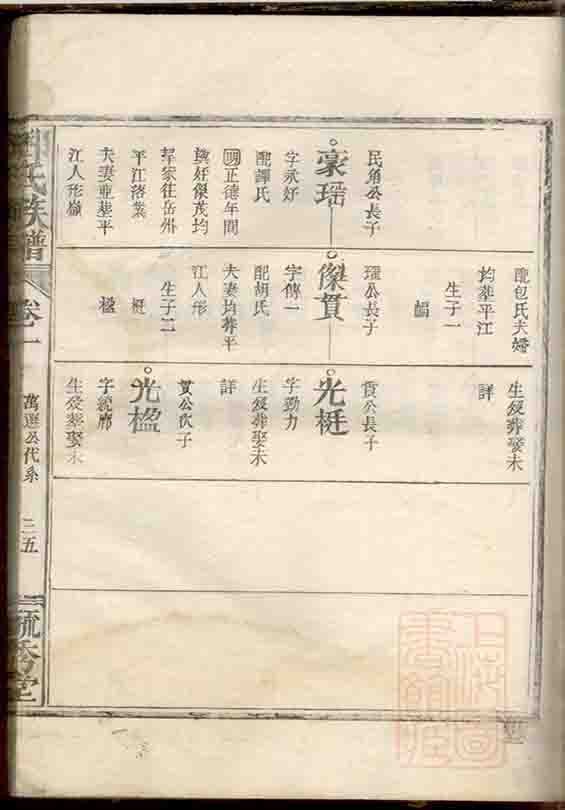 民負公長子
豪瑶
字永好
配譚氏
明正德年間
與好傑茂均
挈家往岳州
平江落業
夫妻並塟平
江人形嶺
配包氏夫婦
均塟平江
生子一
瑶公長子
傑貫
字傳一
配胡氏
夫妻均葬平
江人形
生子二
梃
楹
生歿葬娶未
詳
貫公長子
光梃
字勁力
生歿葬娶未
詳
貫公次子
光楹
字統廊
生歿葬娶未
氏族譜
卷一
萬選公代系
三五